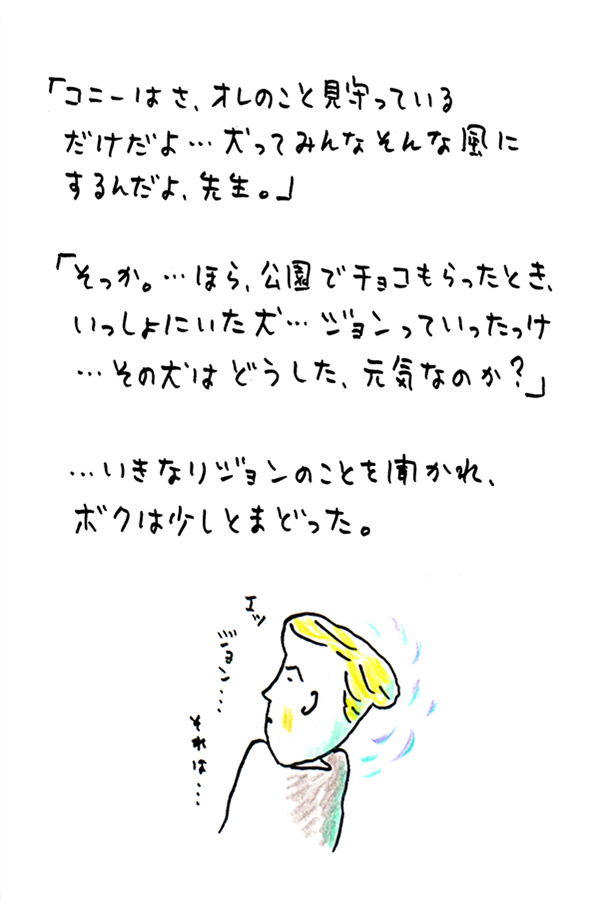 「コニーはさ、オレのこと見守っている
だけだよ…犬ってみんなそんな風に
するんだよ、先生。」
「そっか。…ほら、公園でチョコもらったとき、
いっしょにいた犬…ジョンっていったっけ
…その犬はどうした、元気なのか?」
…いきなりジョンのことを聞かれ、
ボクは少しとまどった。
エッ
ジョン…
それは…